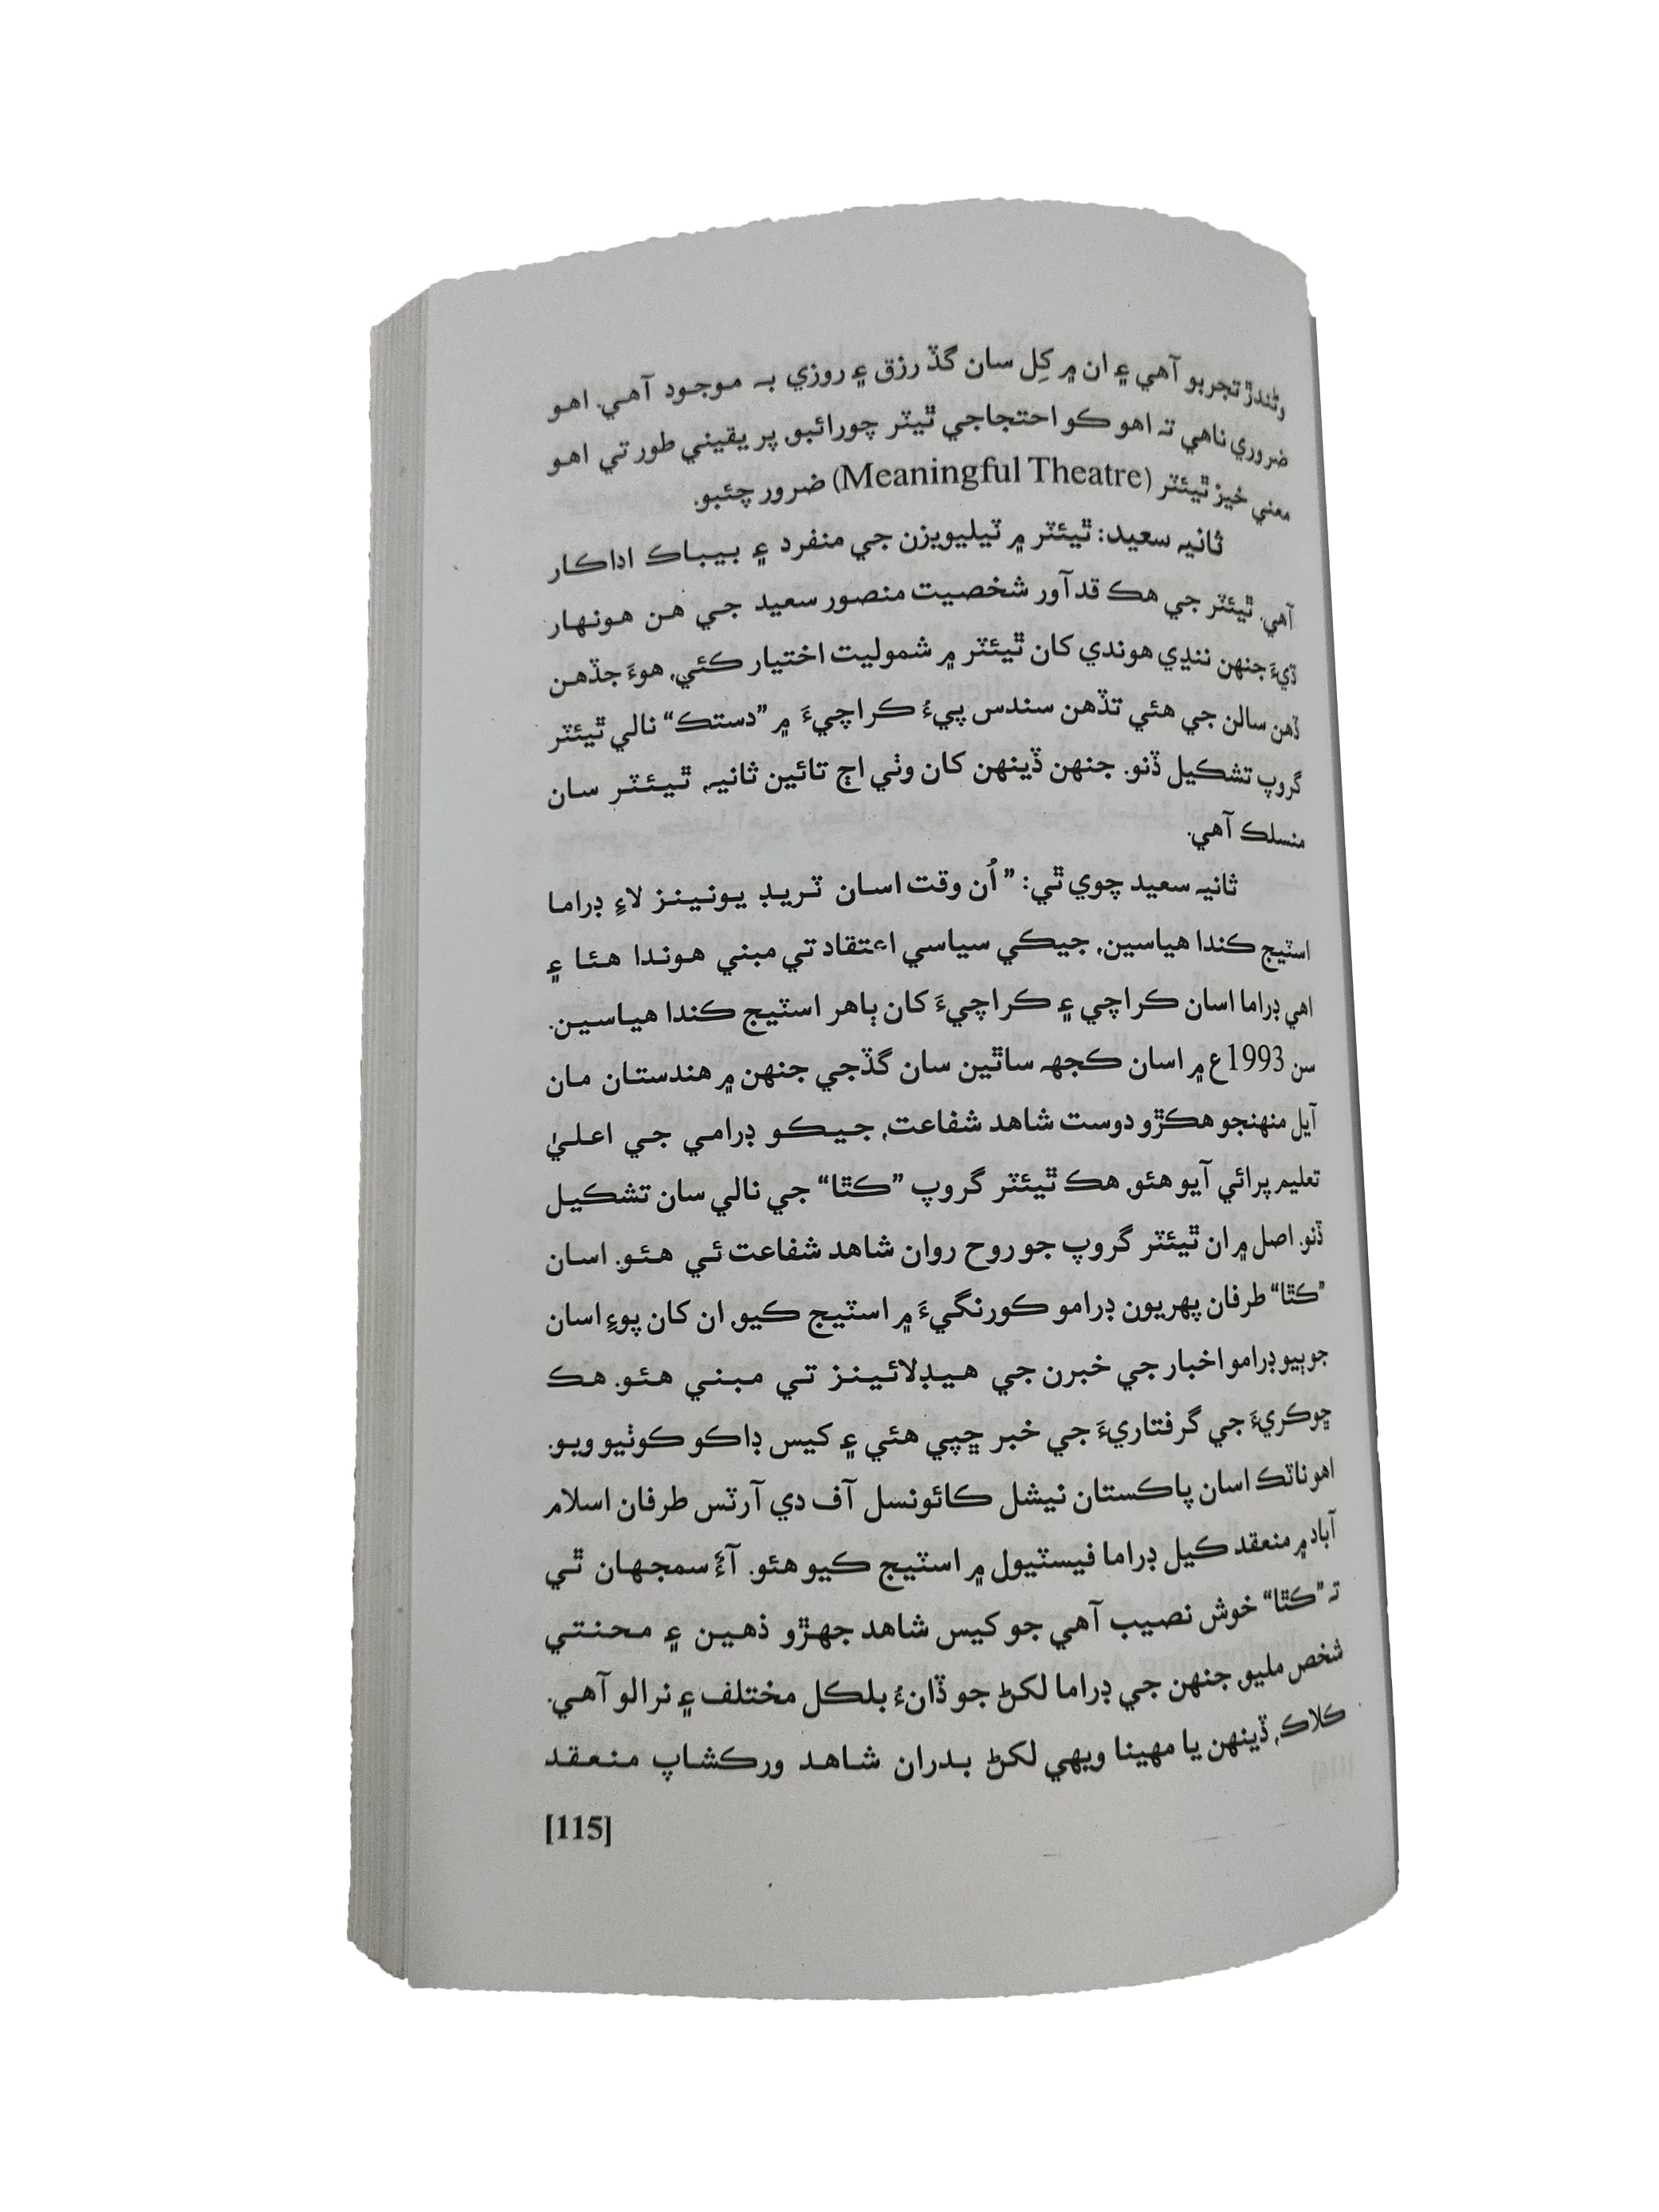 وڻندڙ تجربو آهي ۽ ان ۾ کِل سان گڏ رزق ۽ روزي به موجود آهي. اهو
ضروري ناهي ته اهو ڪو احتجاجي ٿيٽر چورائبو، پر يقيني طور تي اهو
معني خيز ٿيئٽر (Meaningful Theatre) ضرور چئبو.
ثانيه سعيد: ٿيئٽر ۾ ٽيليويزن جي منفرد ۽ بيباڪ اداڪار
آهي. ٿيئٽر جي هڪ قدآور شخصيت منصور سعيد جي هن هونهار
ڌيءَ جنهن ننڍي هوندي کان ٿيئٽر ۾ شموليت اختيار ڪئي، هوءَ جڏهن
ڏهن سالن جي هئي تڏهن سندس پيءُ ڪراچيءَ ۾ ”دستڪ“ نالي ٿيئٽر
گروپ تشڪيل ڏنو. جنهن ڏينهن کان وٺي اڄ تائين ثانيه، ٿيئٽر سان
منسلڪ آهي.
ثانيه سعيد چوي ٿي: ” اُن وقت اسان ٽريڊ يونينز لاءِ ڊراما
اسٽيج ڪندا هياسين، جيڪي سياسي اعتقاد تي مبني هوندا هئا ۽
اهي ڊراما اسان ڪراچي ۽ ڪراچيءَ کان ٻاهر اسٽيج ڪندا هياسين.
سن 1993ع ۾ اسان ڪجهه ساٿين سان گڏجي جنهن ۾ هندستان مان
آيل منهنجو هڪڙو دوست شاهد شفاعت، جيڪو ڊرامي جي اعليٰ
تعليم پرائي آيو هئو، هڪ ٿيئٽر گروپ ”ڪٿا“ جي نالي سان تشڪيل
ڏنو. اصل ۾ ان ٿيئٽر گروپ جو روح روان شاهد شفاعت ئي هئو. اسان
”ڪٿا“ طرفان پهريون ڊرامو ڪورنگيءَ ۾ اسٽيج ڪيو. ان کان پوءِ اسان
جو ٻيو ڊرامو اخبار جي خبرن جي هيڊلائينز تي مبني هئو. هڪ
ڇوڪريءَ جي گرفتاريءَ جي خبر ڇپي هئي ۽ کيس ڊاڪو ڪوٺيو ويو.
اهو ناٽڪ اسان پاڪستان نيشل ڪائونسل آف دي آرٽس طرفان اسلام
آباد ۾ منعقد ڪيل ڊراما فيسٽيول ۾ اسٽيج ڪيو هئو. آءٌ سمجهان ٿي
ته ”ڪٿا“ خوش نصيب آهي جو کيس شاهد جهڙو ذهين ۽ محنتي
شخص مليو، جنهن جي ڊراما لکڻ جو ڏانءُ بلڪل مختلف ۽ نرالو آهي.
ڪلاڪ، ڏينهن يا مهينا ويهي لکڻ بدران شاهد ورڪشاپ منعقد
[115]